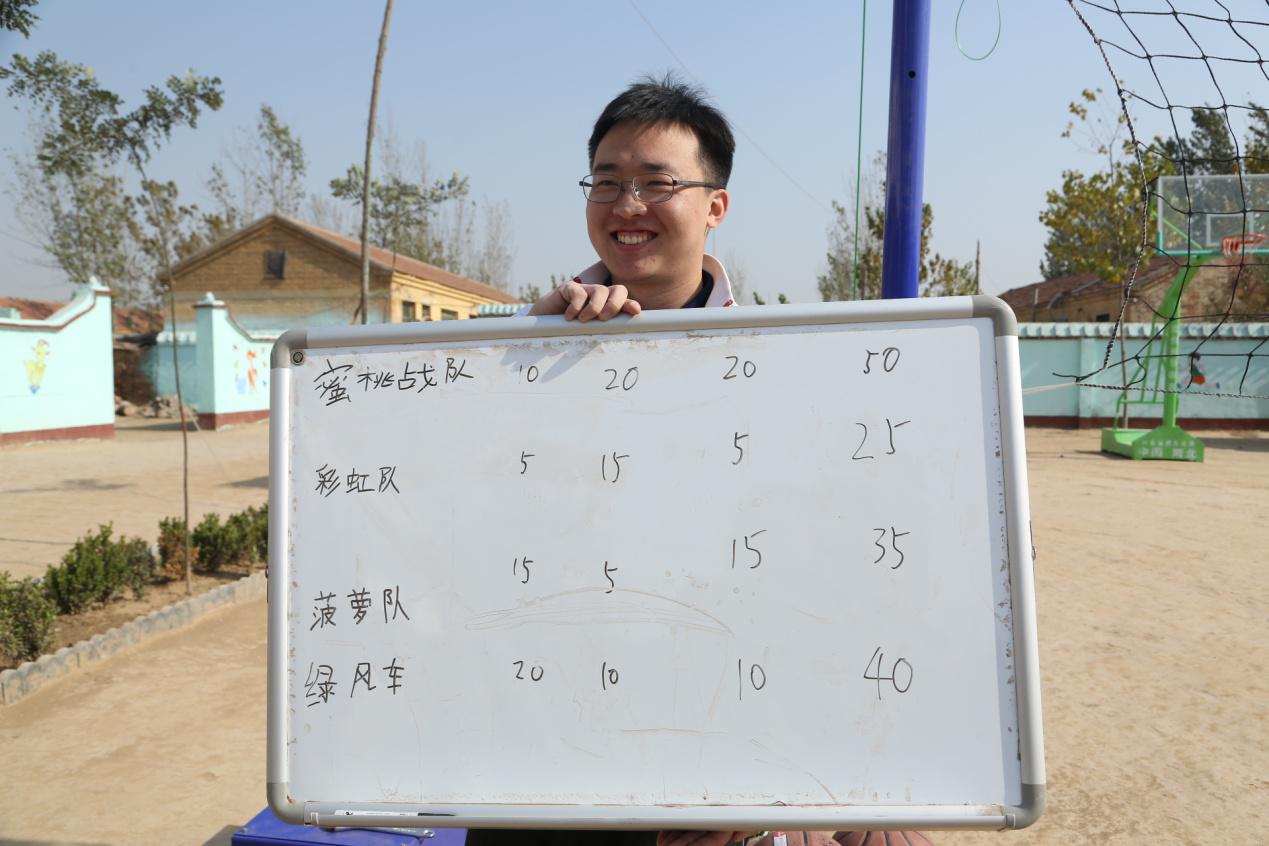 蜜桃战队 10 20 20 50
彩虹队 5 15 5 25
菠萝队 15 5 15 35
绿风车 20 10 10 40
中国 河北